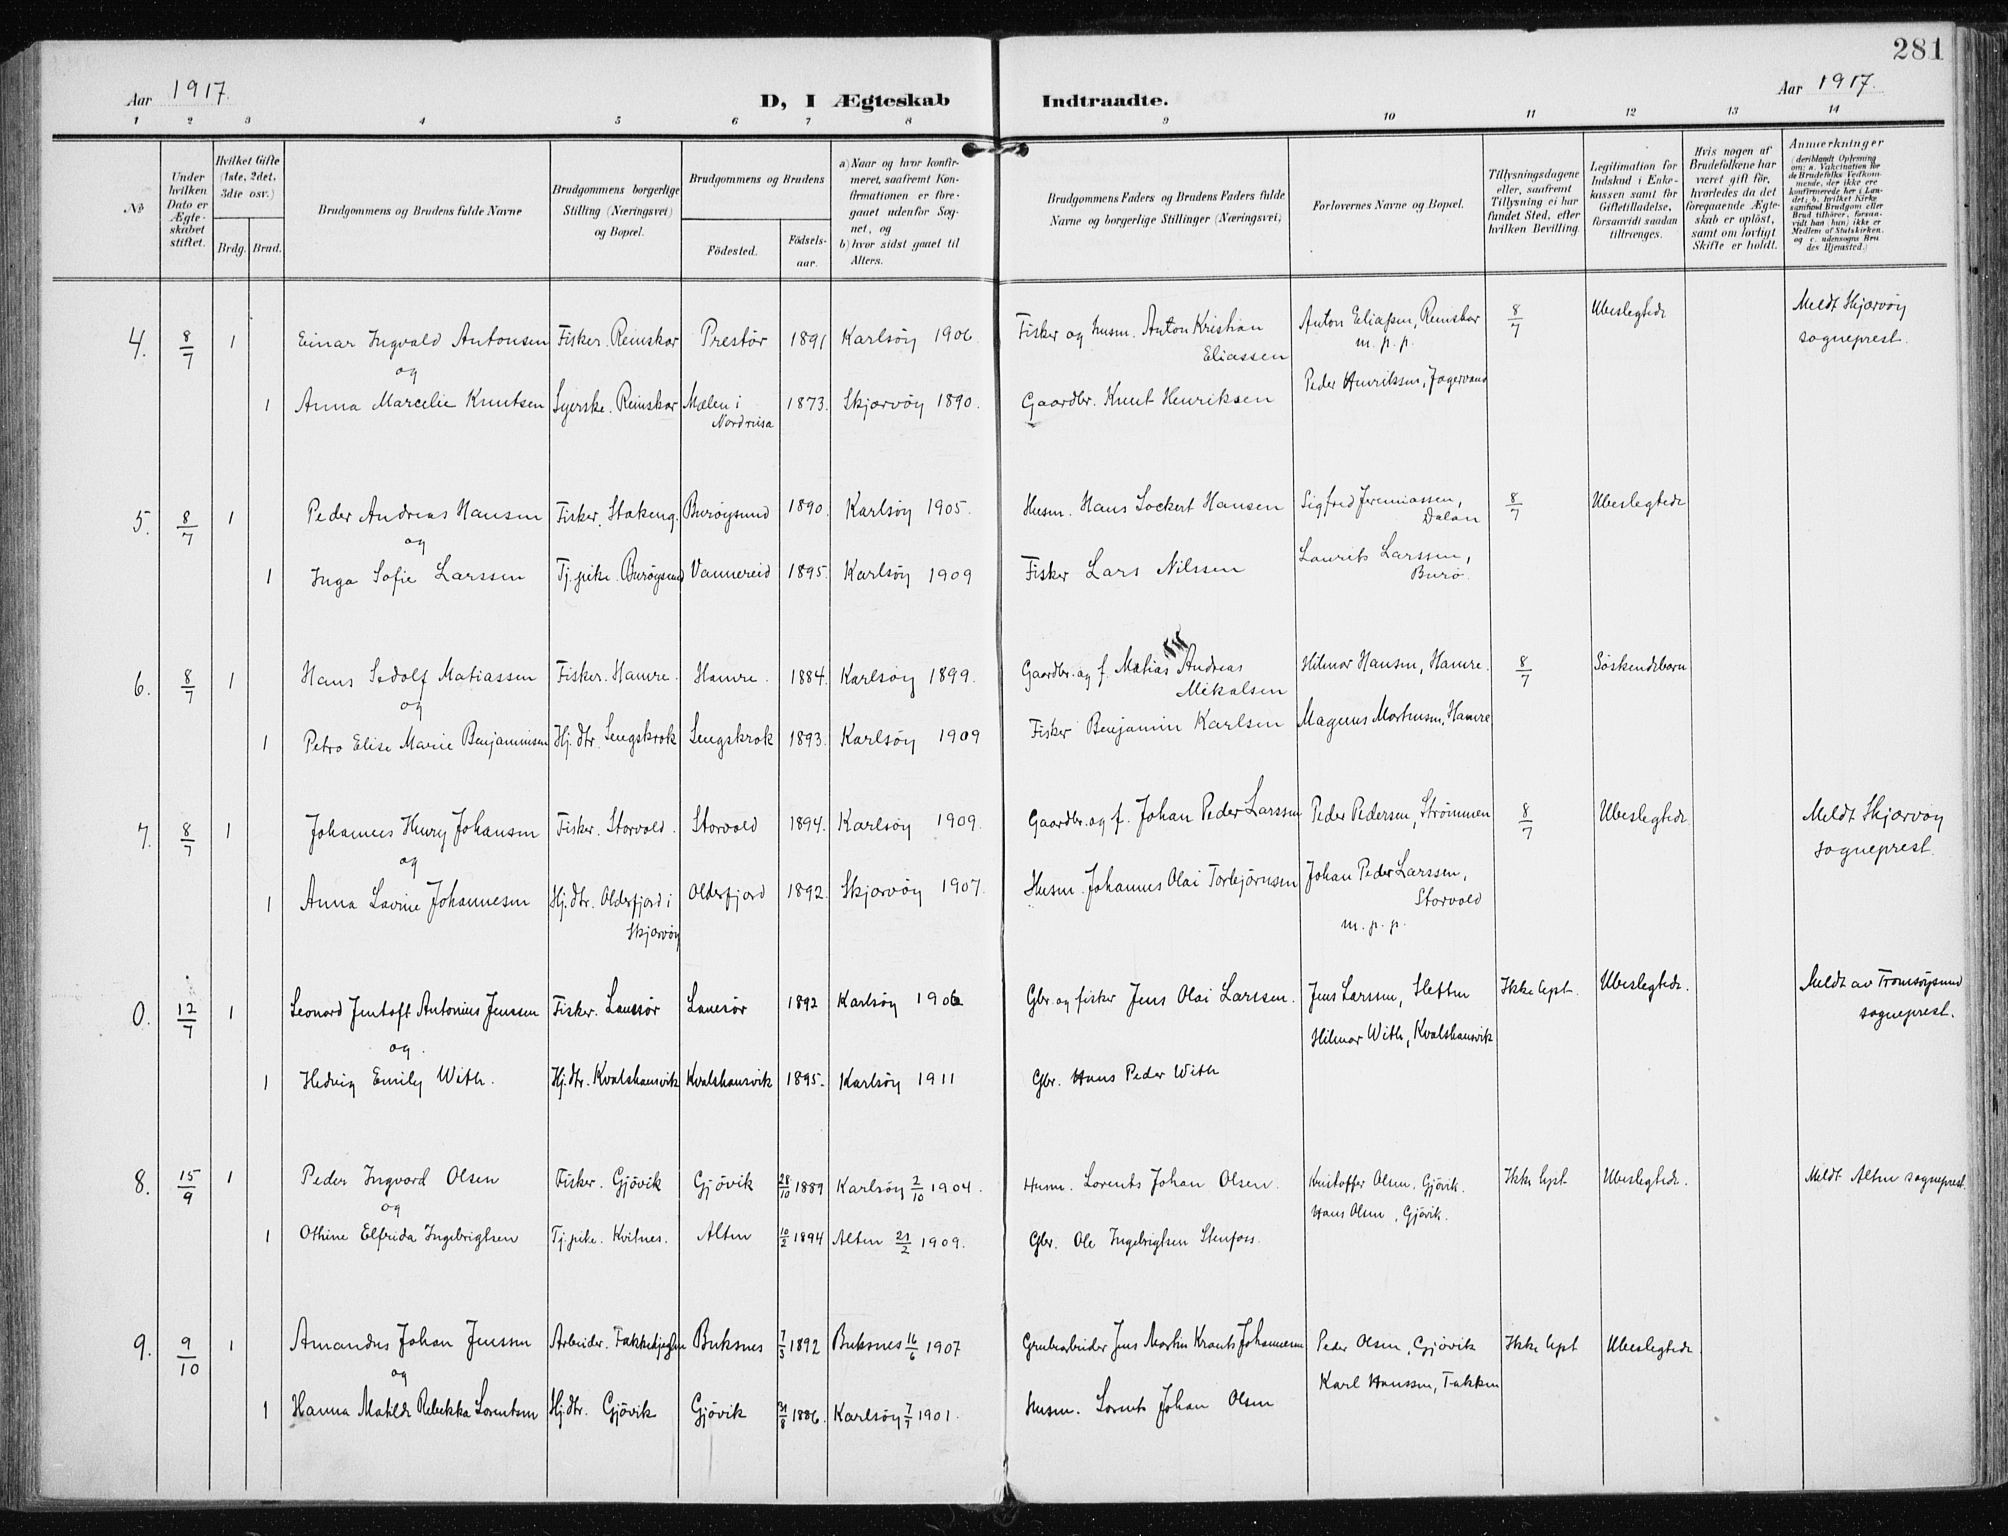 281
Aar 1917.
D, I Ægteskab Indtraadte.
Aar 1917.
1 2 3 4 5 6 7 8 9 10 11 12 13 14
No
Under hvilken Dato er Ægteskabet stiftet.
Hvilket Gifte (1ste, 2det, 3die osv.)
Brdg. Brud.
Brudgommens og Brudens fulde Navne
Brudgommens borgerlige Stilling (Næringsvei) og Bopæl.
Brudgommens og Brudens
Fødested.
Fødselsaar.
a) Naar og hvor konfirmeret, saafremt Konfirmationen er foregaaet udenfor Sognet, og
b) hvor sidst gaaet til Alters.
Brudgommens Faders og Brudens Faders fulde Navne og borgerlige Stillinger (Næringsvei)
Forlovernes Navne og Bopæl.
Tillysningsdagene eller, saafremt Tillysning ei har fundet Sted, efter hvilken Bevilling.
Legitimation for Indskud i Enkekassen samt for Giftetilladelse, forsaavidt saadan tiltrænges.
Hvis nogen af Brudefolkene har været gift før, hvorledes da det foregaaende Ægteskab er opløst, samt om lovligt Skifte er holdt.
Anmærkninger
(deriblandt Oplysning om: a. Vakcination for de Brudefolks Vedkommende, der ikke ere konfirmerede her i Landet; b. hvilket Kirkesamfund Brudgom eller Brud tilhører, forsaavidt han (hun) ikke er Medlem af Statskirken, og c. udensogns Brudes Hjemsted.)
4. 8/7 1 Einar Ingvald Antonsen Fisker. Reinskar Prestør 1891 Karlsöy 1906. Fisker og husm. Anton Kristian Eliassen Anton Eliassen, Reinskar m. p. p. 8/7 Ubeslegtede Meldt Skjærvöy sogneprest.
og
1 Anna Marcelie Knutsen Syerske. Reinskar Mælen i Nordreisa 1873. Skjærvöy 1890. Gaardbr. Knut Henriksen Peder Henriksen, Jægervand
5. 8/7 1 Peder Andreas Hansen Fisker, Stakeng. Burøysund 1890. Karlsöy 1905. Husm. Hans Lockert Hansen Sigfred Jeremiassen, Dalan 8/7 Ubeslegtede
og
1 Inga Sofie Larssen Tj.pike. Burøysund Vannereid 1895. Karlsöy 1909 Fisker Lars Nilssen Laurits Larssen, Burø.
6. 8/7 1 Hans Sedolf Matiassen Fisker. Hamre. Hamre. 1884. Karlsöy 1899. Gaardbr. og f. Matias Andreas Mikalsen Hilmar Hansen, Hamre. 8/7 Søskendebarn
og
1 Petra Elise Marie Benjaminsen Hj.dtr. Lengskrok Lengskrok 1893. Karlsöy 1909 Fisker Benjamin Karlsen Magnus Mortensen, Hamre
7. 8/7 1 Johannes Henry Johansen Fisker. Storvold. Storvold 1894. Karlsöy 1909. Gaardbr. og f. Johan Peder Larssen Peder Pedersen, Strømmen 8/7 Ubeslegtede Meldt Skjærvöy sogneprest.
og
1 Anna Lavine Johannesen Hj.dtr. Olderfjord i Skjærvöy Olderfjord 1892. Skjærvöy 1907. Husm. Johannes Olai Torbjørnsen Johan Peder Larssen, Storvold m. p. p.
0. 12/7 1 Leonard Jentoft Antonius Jenssen Fisker. Lanesør Lanesør 1892 Karlsöy 1906 Gbr. og fisker Jens Olai Larssen. Jens Larssen, Sletten Ikke lyst. Ubeslegtede. Meldt av Tromsøysund sogneprest.
og.
1 Hedvig Emily With. Hj.dtr. Kvalshausvik Kvalshausvik 1895. Karlsöy 1911 Gbr. Hans Peder With Hilmar With, Kvalshausvik
8. 15/9 1 Peder Ingvard Olsen Fisker. Gjövik Gjövik 28/10 1889 Karlsöy 2/10 1904. Husm. Lorents Johan Olsen. Kristoffer Olsen, Gjövik. Ikke lyst Ubeslegtede. Meldt Alten sogneprest.
og
Hans Olsen, Gjövik.
1 Othine Elfrida Ingebrigtsen Tj.pike. Kvitnes. Alten 10/2 1894 Alten 21/2 1909. Gbr. Ole Ingebrigtsen Stenfoss.
9. 9/10 1 Amandus Johan Jenssen Arbeider. Buksnes 7/3 1892 Buksnes 16/6 1907 Grubearbeider Jens Martin Johannesen Peder Olsen, Gjövik Ikke lyst Ubeslegtede
og
Karl Hanssen, Takken
1 Hanna Matilde Rebekka Lorentsen Hj.dtr. Gjövik Gjövik 31/8 1886. Karlsöy 7/7 1901. Husm. Lorents Johan Olsen